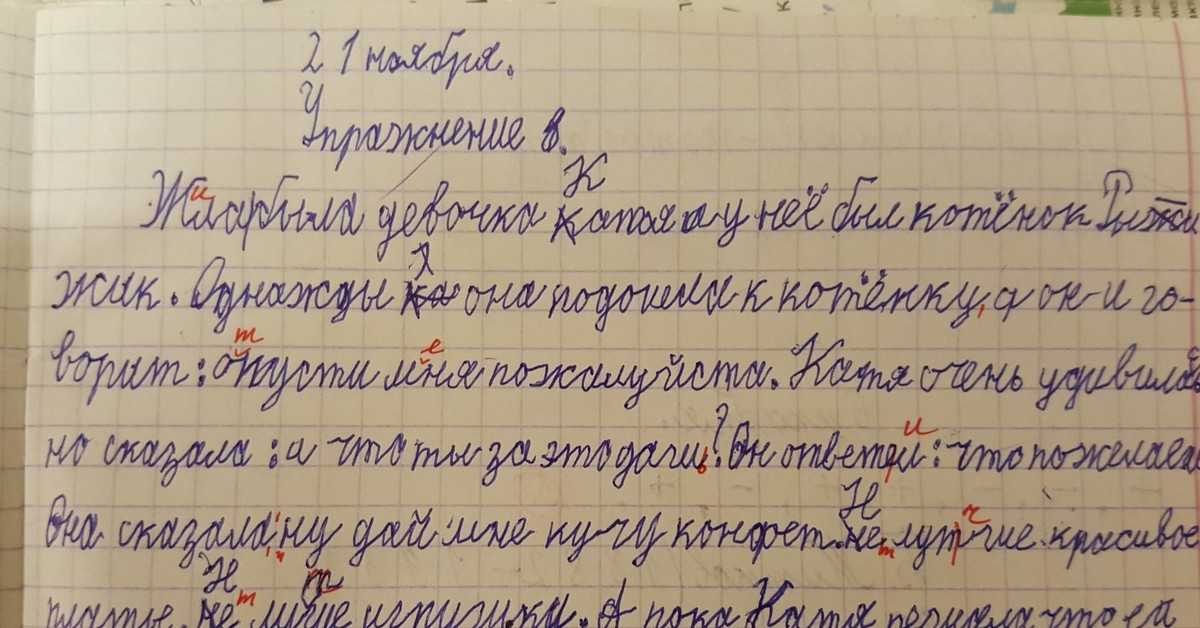 21 ноября.
Упражнение 8.
Жила была девочка Катя а у неё был котёнок Рыжи
жик. Однажды она подошла к котёнку, а он и го-
ворит: отпусти меня пожалуйста. Катя очень удивилась
но сказала: а что ты за это дашь? Он ответил: что пожелаеш
Она сказала: ну дай мне кучу конфет. Нет лутчие красивое
платье. Нет лучше игрушки. А пока Катя решала что ей